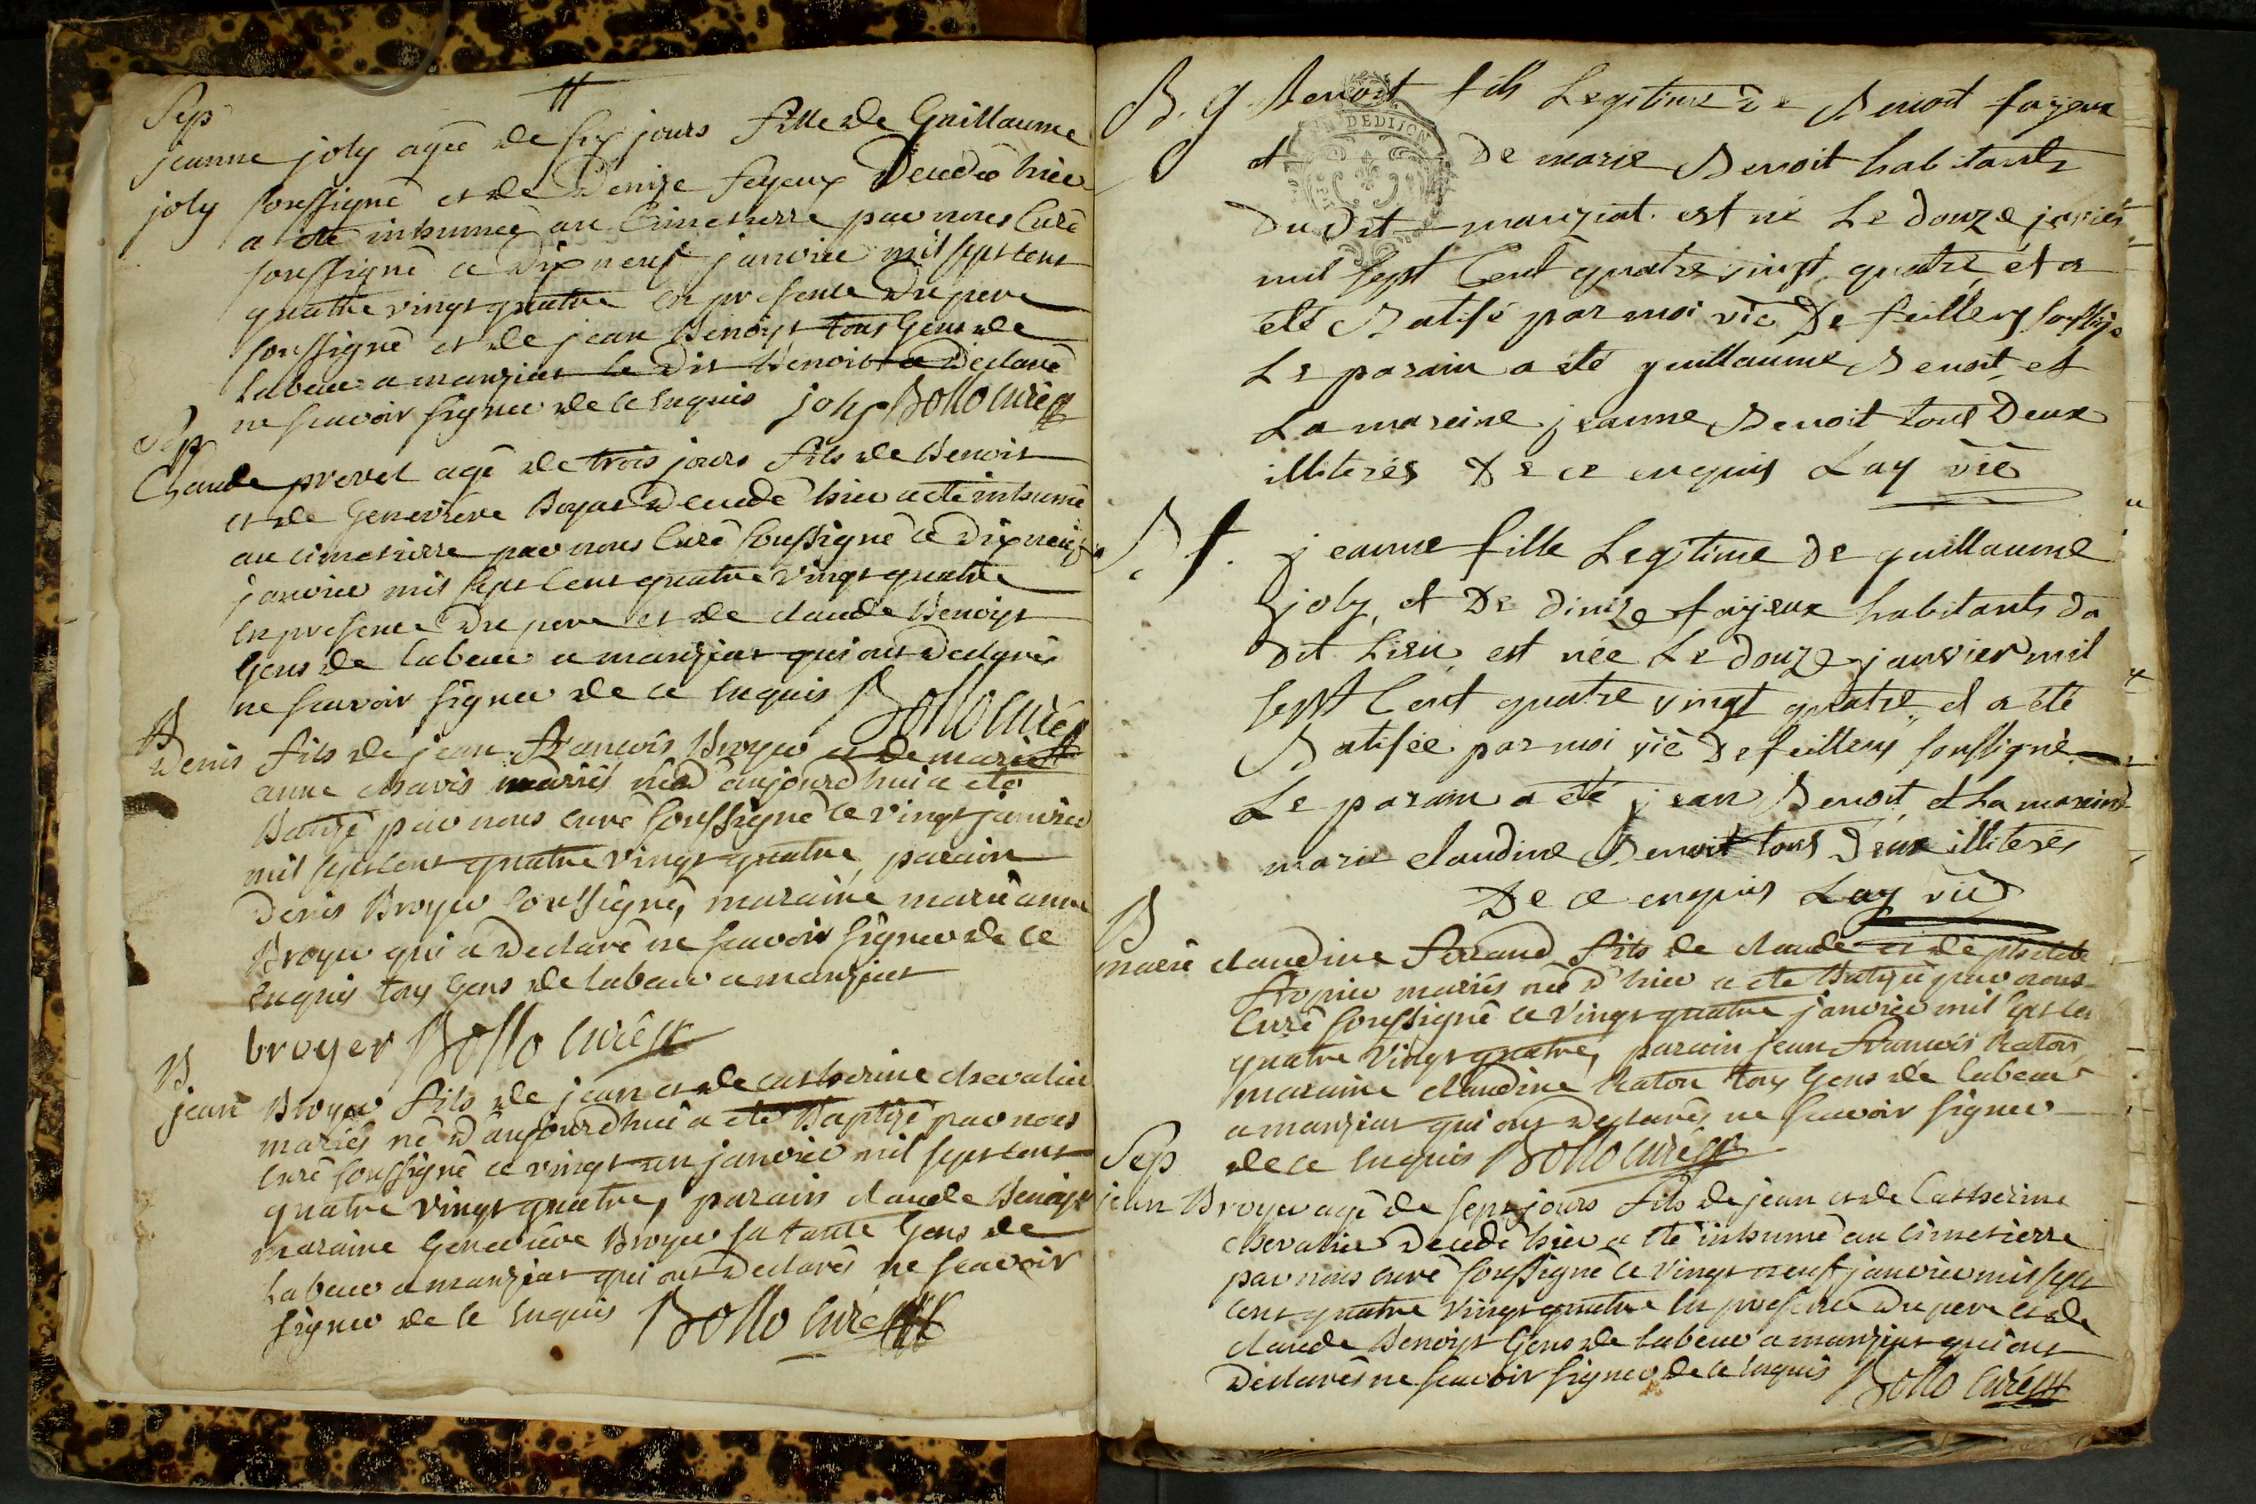 Sep
jeanne joly agée de six jours fille de Guillaume
joly soussigné et de Denize fayeux Decedée hier
a été inhumée au Cimetierre par nous Curé
soussigné ce Dix neuf janvier mil sept cent
quatre vingt quatre en presence du pere
soussigné et de jean Benoist tous Gens de
labeur a manziat le dit Benoist a Declaré
ne scavoir signer de ce enquis joly Bollo curé
Sep
Claude prevel agé de trois jours fils de Benoist
et de Genevieve Boyat Decedé hier a été inhumé
au cimetierre par nous Curé soussigné ce Dix neuf
janvier mil sept cent quatre vingt quatre
en presence du pere et de claude Benoist
Gens de labeur a manziat qui ont Declarés
ne scavoir signer de ce enquis Bollo curé
B
Denis fils de jean francois Broyer et de marie
anne chavis mariés né d'aujourd'hui a été
Batizé par nous curé soussigné ce vingt janvier
mil sept cent quatre vingt quatre, parain
Denis Broyer soussigné, maraine marie anne
Broyer qui a Declaré ne scavoir signer de ce
enquis tous Gens de labeur a manziat
broyer Bollo curé
B
jean Broyer fils de jean et de catherine chevalier
mariés né d'aujourd'hui a été Baptizé par nous
curé soussigné ce vingt un janvier mil sept cent
quatre vingt quatre, parain claude Benoist
maraine Genevieve Broyer sa tante Gens de
labeur a manziat qui ont Declarés ne scavoir
signer de ce enquis Bollo curé
B. g. Benoit fils Legitime de Benoit fayeux
DE DIJON
et de marie Benoit habitants
du dit manziat est né Le douze janvier
mil sept Cent quatre vingt quatre et a
été Batisé par moi vic De feillens soussigné
Le parain a été guillaume Benoit et
La mareine jeanne Benoit tous Deux
illiterés De ce enquis Lay vic
B f. jeanne fille Legitime de guillaume
joly, et De dinize fayeux habitants du
dit Lieu est née Le douze janvier mil
sept Cent quatre vingt quatre, et a été
Batisée par moi vic De feillens soussigné
Le parain a été jean Benoit et La mareine
marie claudine Benoit tous Deux illiterés
De ce enquis Lay vic
B
marie claudine ferrand fils de claude et de
mariés née d'hier a été Batizée par nous
Curé soussigné ce vingt quatre janvier mil sept cent
quatre vingt quatre, parain jean francois Caton
maraine claudine Caton tous Gens de labeur
a manziat qui ont Declarés ne scavoir signer
de ce enquis Bollo curé
Sep
jean Broyer agé de sept jours fils de jean et de Catherine
chevalier Decedé hier a été inhumé au cimetierre
par nous curé soussigné ce vingt neuf janvier mil sept
cent quatre vingt quatre en presence du pere et de
claude Benoist Gens de labeur a manziat qui ont
Declarés ne scavoir signer de ce enquis Bollo curé